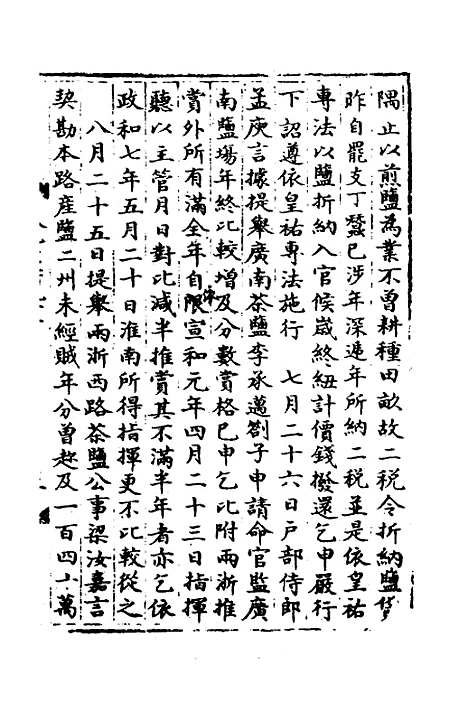 隅止以煎鹽為業不曽耕種田畝故二税令折納鹽貨
昨自罷支丁蠶已涉年深遞年所納二税並是依皇祐
專法以鹽折納入官候歲終紐計價錢撥還乞申嚴行
下詔遵依皇祐專法施行　七月二十六日戶部侍郎
孟庾言據提舉廣南茶鹽李承邁劄子申請命官監廣
南鹽場年終比較增及分數賞格已申乞比附兩浙推
賞外所有滿全年自限宣和元年四月二十三日指揮
聽以主管月日對比減半推賞其不滿半年者亦乞依
政和七年五月二十日淮南所得指揮更不比較從之
八月二十五日提舉兩浙西路茶鹽公事梁汝嘉言
契勘本路産鹽二州未經賊年分曽趂及一百四十萬